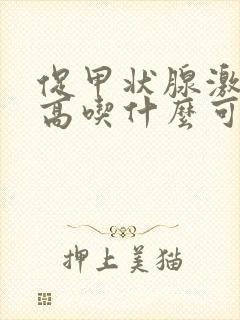 促甲状腺激
高喫什麼可
押上美猫